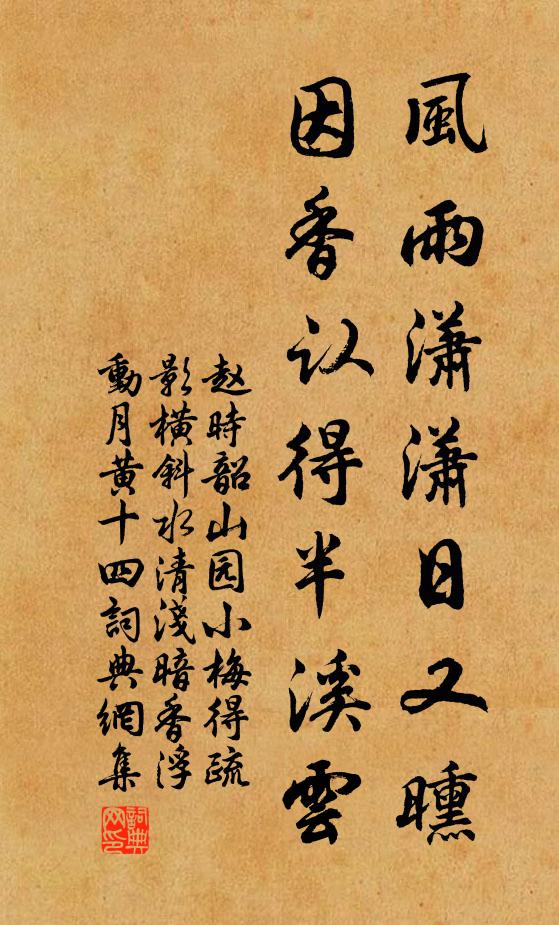 風雨瀟瀟日又曛
因香认得半溪雲
赵時韶山园小梅得疏
影橫斜水清淺暗香浮
動月黄十四詞典網集
詞典
网印